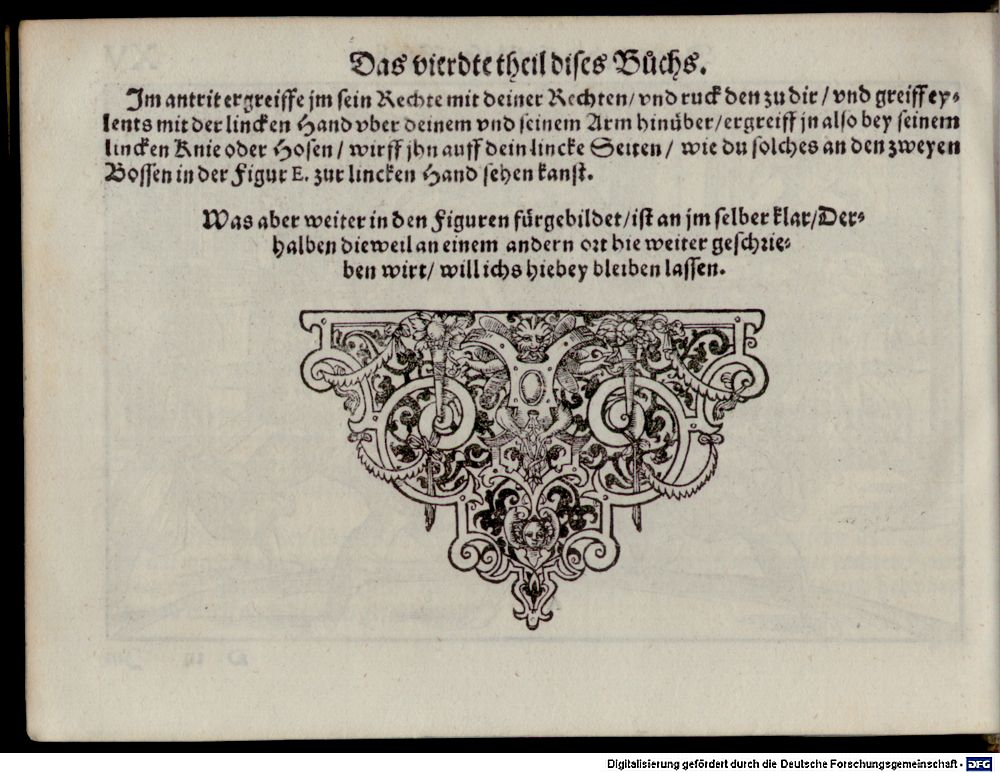 Das vierdte theil dises Bůchs.
Im antrit ergreiffe jm sein Rechte mit deiner Rechten/ vnd ruck den zu dir / vnd greiff ey⸗
lents mit der lincken Hand vber deinem vnd seinem Arm hinüber/ ergreiff jn also bey seinem
lincken Knie oder Hosen / wirff jhn auff dein lincke Seiten / wie du solches an den zweyen
Bossen in der Figur E. zur lincken Hand sehen kanst.
Was aber weiter in den Figuren fürgebildet/ ist an jm selber klar/ Der⸗
halben dieweil an einem andern ort hie weiter geschrie⸗
ben wirt/ will ichs hiebey bleiben lassen.
Digitalisierung gefördert durch die Deutsche Forschungsgemeinschaft - DFG